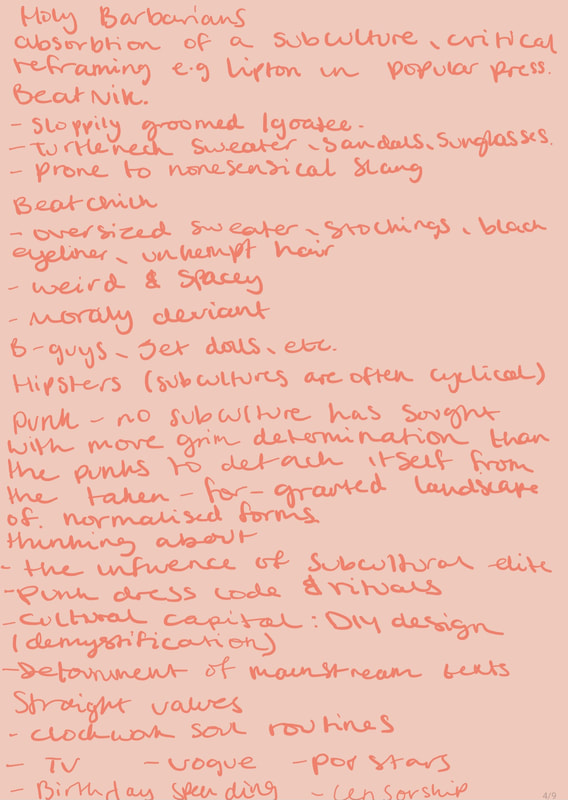 Holy Barbarians
absorbtion of a subculture, critical
reframing e.g Lipton in popular press.
BeatNik.
- sloppily groomed / goatee.
- Turtleneck sweater, sandals, sunglasses.
- prone to nonesensical slang
Beatchick
- oversized sweater, stockings, black
eyeliner, unkempt hair
- weird & spacey
- moraly deviant
B-guys, Jet dolls, etc.
Hipsters (subcultures are often cyclical)
Punk - no subculture has sought
with more grim determination than
the punks to detach itself from
the taken-for-granted landscape
of normalised forms
thinking about
- the influence of subcultural elite
- punk dress code & rituals
- cultural capital : DIY design
(demystification)
- Detornment of mainstream texts
Straight values
- clockwork soul routines
- TV - vogue - pop stars
- Birthday spending - censorship
4/9